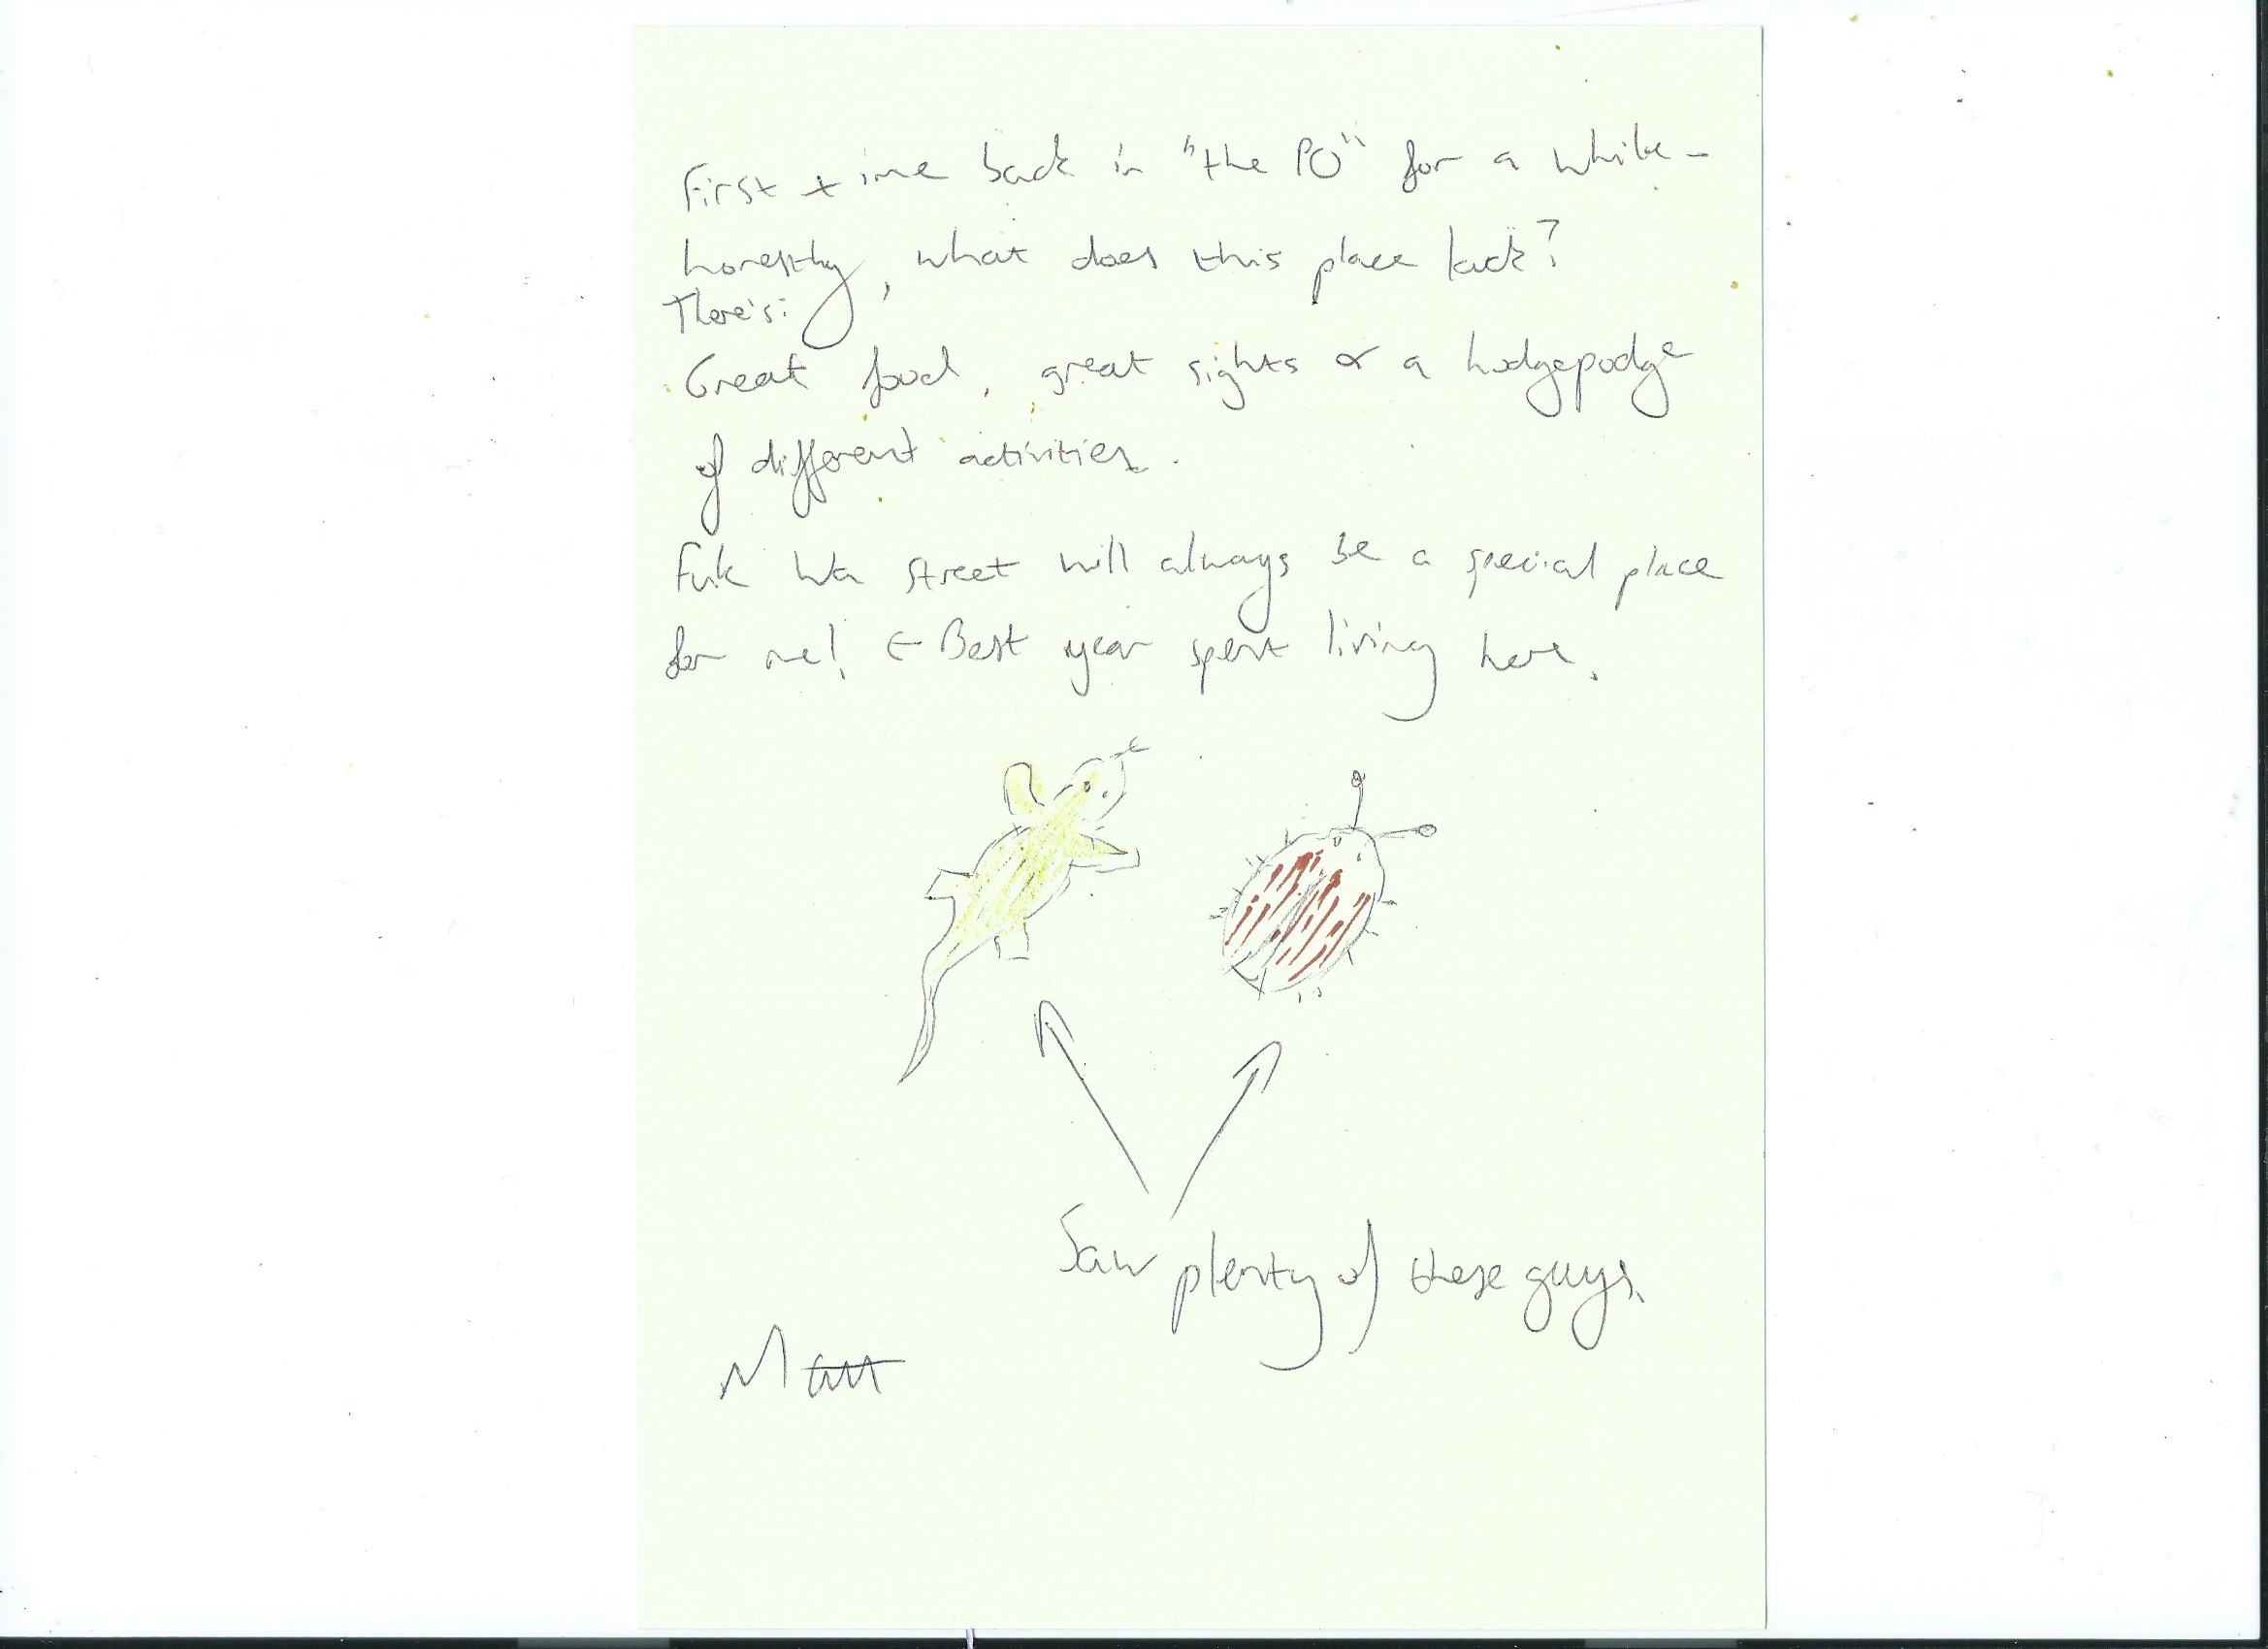 First time back in "the PO" for a while -
honestly, what does this place lack?
There's:
Great food, great sights or a hodgepodge
of different activities.
Fuk Wa Street will always be a special place
for me! ← Best year spent living here.
Saw plenty of these guys.
Matt